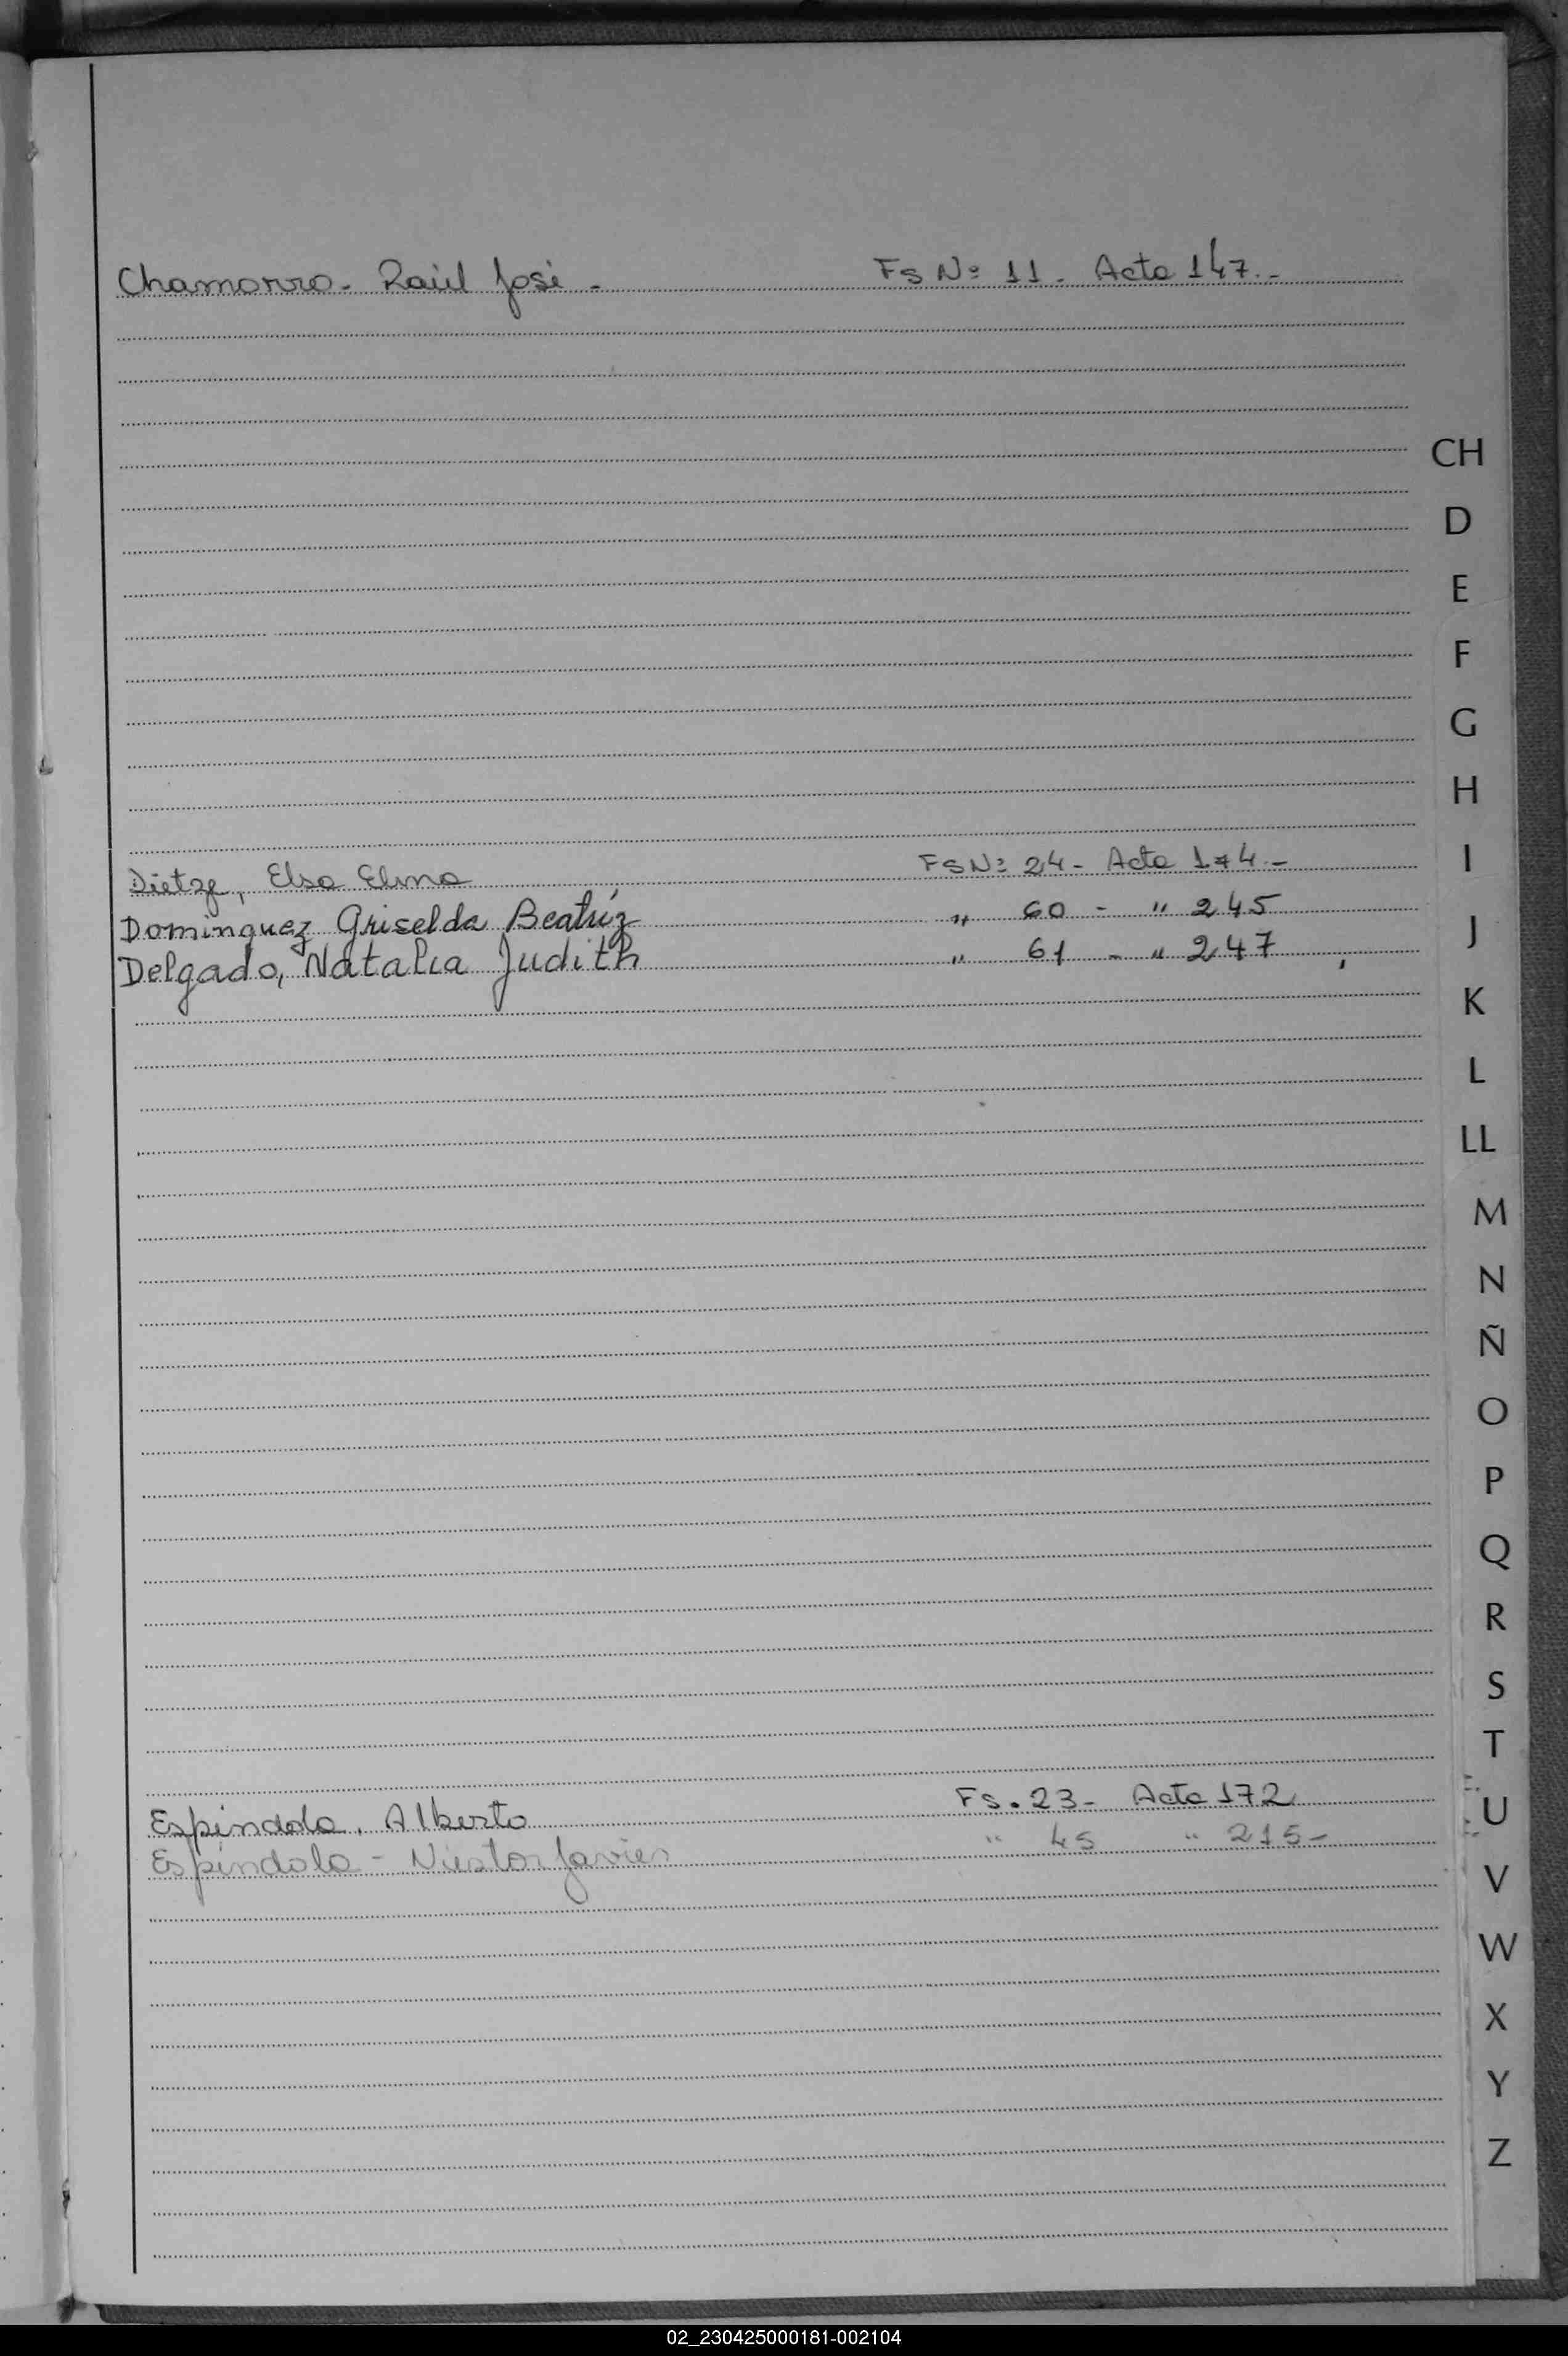 Chamorro - Raúl José - Fs Nº 11 - Acta 147.-
CH
D
E
F
G
H
I
Dietze, Elsa Elena Fs Nº 24 - Acta 174.-
Dominguez Griselda Beatríz " 60 - " 245
J
Delgado, Natalia Judith " 61 - " 247
K
L
LL
M
N
Ñ
O
P
Q
R
S
T
Espíndola, Alberto Fs. 23 - Acta 172
U
Espíndola - Néstor Javier " 45 " 215 -
V
W
X
Y
Z
02_230425000181-002104